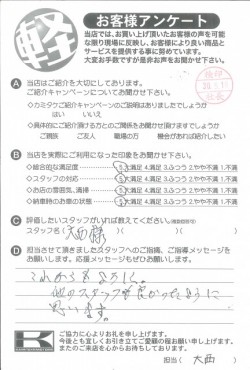 軽
お客様アンケート
当店では、お買い上げ頂いたお客様の声を可能
な限り現場に反映し、お客様により良い商品と
サービスを提供する事に努めています。
大変お手数ですが是非お声をお聞かせ下さい。
A 当店はご紹介を大切にしております。
ご紹介キャンペーンについてお聞かせ下さい。
◇カミタウご紹介キャンペーンのご説明はありましたでしょうか
はい いいえ
◇具体的にご紹介頂ける方との関係をお聞かせ頂けますでしょうか
ご親族 ご友人 職場の方 機会があれば紹介したい
B 当店を実際にご利用になった印象をお聞かせ下さい。
◇総合的な満足度 5.大満足 4.満足 3.ふつう 2.やや不満 1.不満
◇スタッフの対応 5.大満足 4.満足 3.ふつう 2.やや不満 1.不満
◇お店の雰囲気、清掃 5.大満足 4.満足 3.ふつう 2.やや不満 1.不満
◇納車時のお車の状態 5.大満足 4.満足 3.ふつう 2.やや不満 1.不満
C 評価したいスタッフがいれば教えてください。
スタッフ名( 大西様 )
D 担当させて頂きましたスタッフへのご指摘、ご指導メッセージを
お願いします。応援メッセージもぜひお願いします。
これからもよろしく。
他のスタッフも良かったように
思います。
K
ご協力に心よりお礼を申し上げます。
今後とも宜しくお引き立てご愛顧の程お願い申し上げます。
またのご来店を心からお待ちしております。
担当( 大西 )